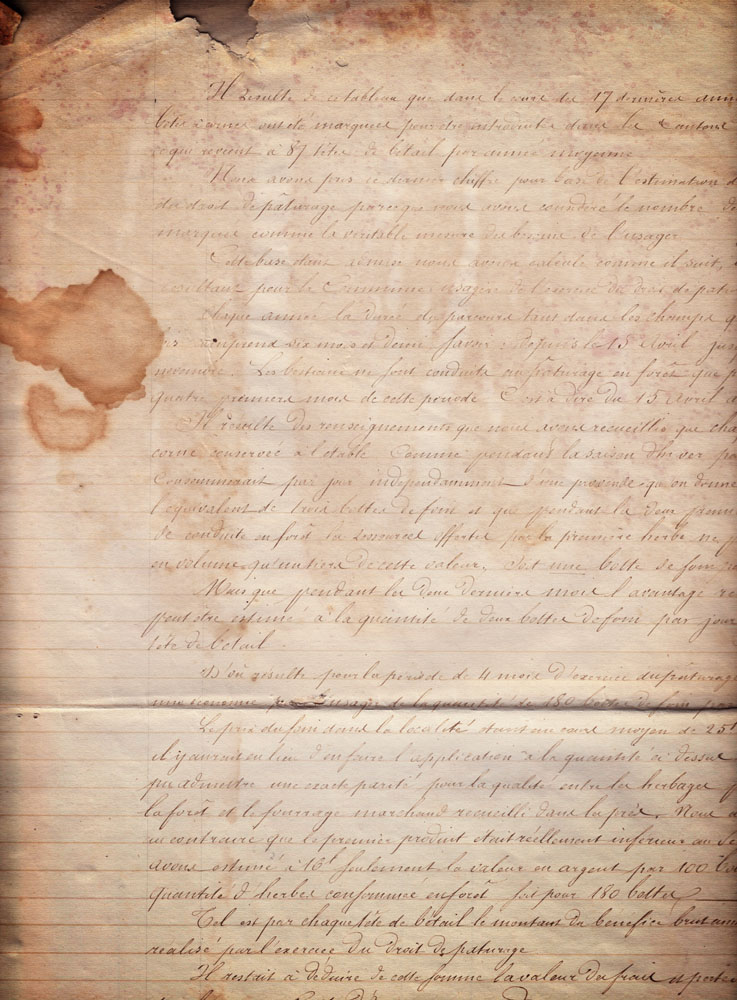 Il résulte de ce tableau que dans le cours des 17 dernières ann
bêtes à cornes ont été marquées pour être introduites dans le Cantonn
ce qui revient à 87 têtes de bétail par année moyenne
Nous avons pris ce dernier chiffre pour base de l'estimation d
du droit de pâturage parceque nous avons considéré le nombre de
marques comme la véritable mesure des besoins de l'usager
Cette base étant admise nous avons calculé comme il suit,
résultant pour la Commune usagère de l'exercice du droit de patu
chaque année la durée du parcours tant dans les champs q
comprend six mois et demi savoir: depuis le 15 Avril jus
novembre. Les bestiaux ne sont conduits au pâturage en forêt que p
quatre premiers mois de cette période C'est à dire du 15 Avril a
Il résulte des renseignements que nous avons recueillis que cha
corne conservée à l'étable Comme pendant la saison d'hiver pa
Consommerait par jour indépendamment d'une provende qu'on donne
l'équivalent de trois bottes de foin et que pendant les deux premi
de conduite en forêt la ressource offerte par la première herbe ne p
en volume qu'un tiers de cette valeur, soit une botte de foin
Mais que pendant les deux derniers mois l'avantage re
peut être estimé à la quantité de deux bottes de foin par jour
tête de bétail.
D'où résulte pour la période de 4 mois d'exercice du pâturage
une économie pour l'usager de la quantité de 180 bottes de foin par
Le prix du foin dans la localité étant au cours moyen de 25f
il y aurait eu lieu d'en faire l'application à la quantité ci dessus
pu admettre une exacte parité pour la qualité entre les herbages
la forêt et le fourrage marchand recueilli dans les prés. Nous a
au contraire que le premier produit était réellement inférieur au se
avons estimé à 16f seulement la valeur en argent par 100 bo
quantité d'herbes consommée en forêt soit pour 180 bottes
Tel est par chaque tête de bétail le montant du bénéfice brut ann
réalisé par l'exercice du droit de pâturage
Il restait à déduire de cette somme la valeur des frais et perte